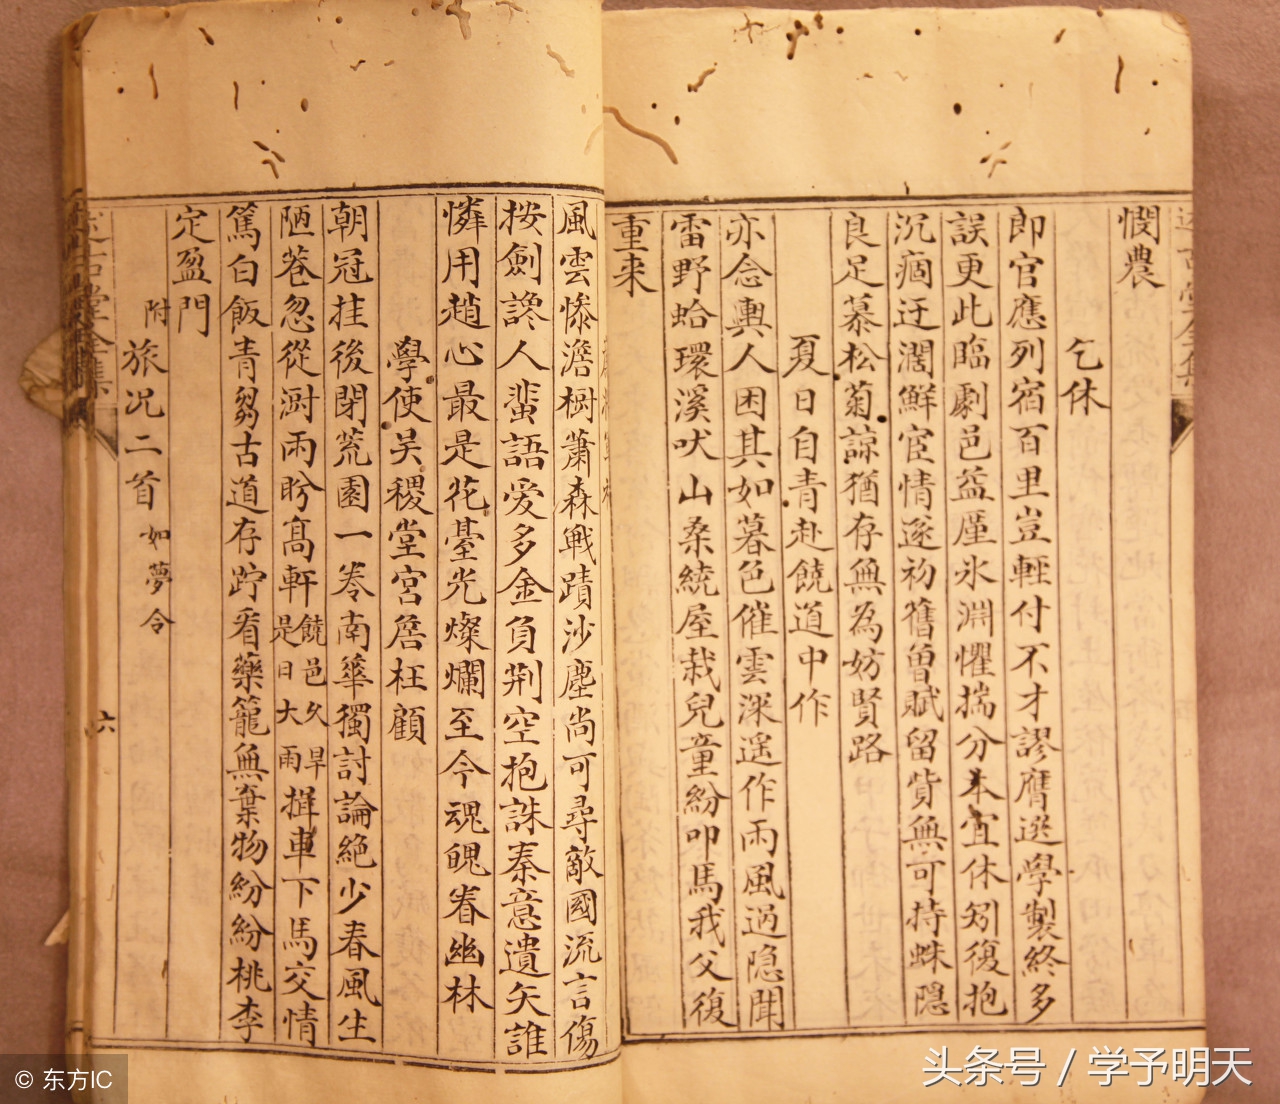 憫農
乞休
即官應列宿百里豈輕付不才謬膺選學製終多
誤更此臨劇邑益廑氷淵懼揣分本宜休矧復抱
沉痼迂濶鮮宦情遂初舊曾賦留貲無可持蛛隠
良足慕松菊諒猶存無為妨賢路
夏日自青赴饒道中作
亦念輿人困其如暮色催雲深遥作雨風過隐聞
雷野蛤環溪吠山桑繞屋栽兒童紛叩馬我父復
重来
風雲慘澹樹蕭森戰蹟沙塵尚可尋敵國流言傷
按劍讒人蜚語愛多金負荆空抱誅秦意遺矢誰
憐用趙心最是花臺光燦爛至今魂魄眷幽林
學使吴稷堂宮詹枉顧
朝冠挂後閉荒園一卷南華獨討論絶少春風生
陋巷忽從澍雨盼高軒饒邑久旱是日大雨揖車下馬交情
篤白飯青芻古道存跨看藥籠無棄物紛紛桃李
定盈門
附旅况二首如夢令
六
© 东方IC
头条号 / 学予明天